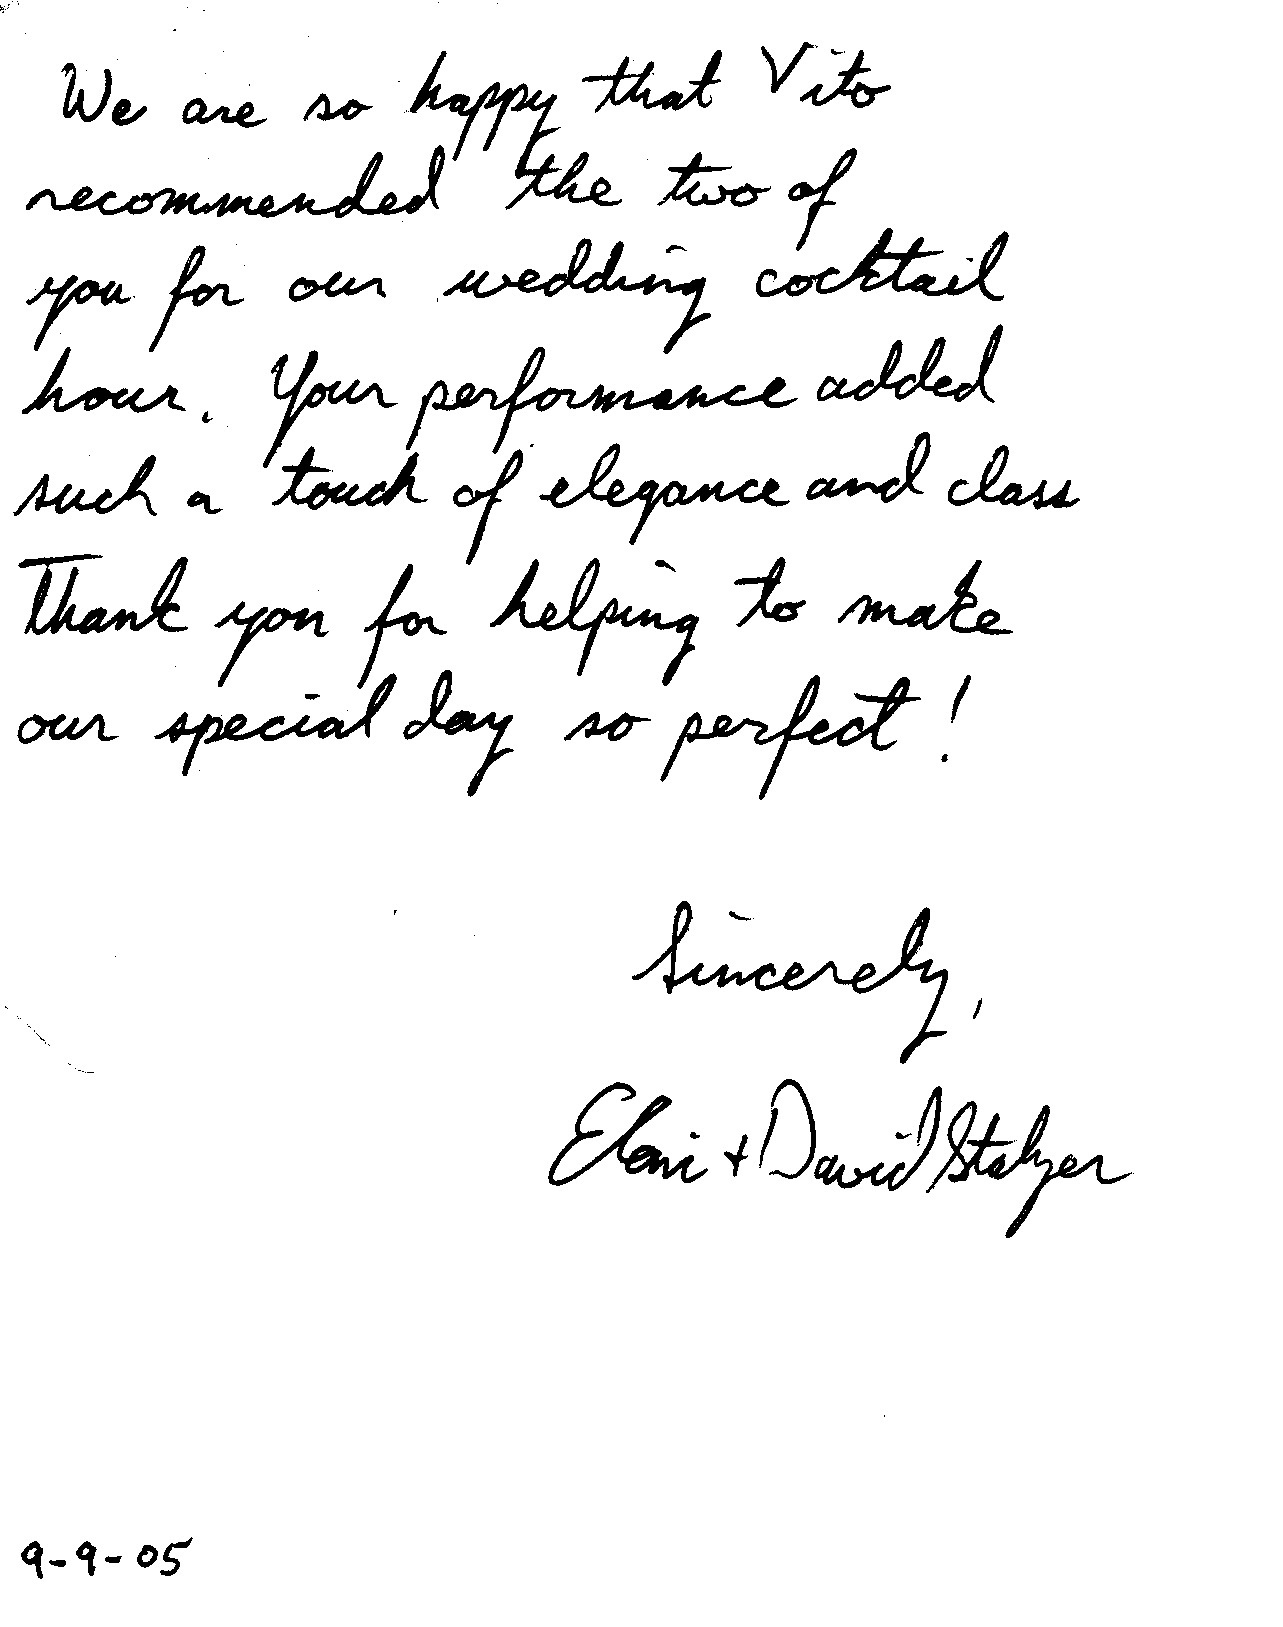 We are so happy that Vito
recommended the two of
you for our wedding cocktail
hour. Your performance added
such a touch of elegance and class
Thank you for helping to make
our special day so perfect!
Sincerely,
+ David
9-9-05